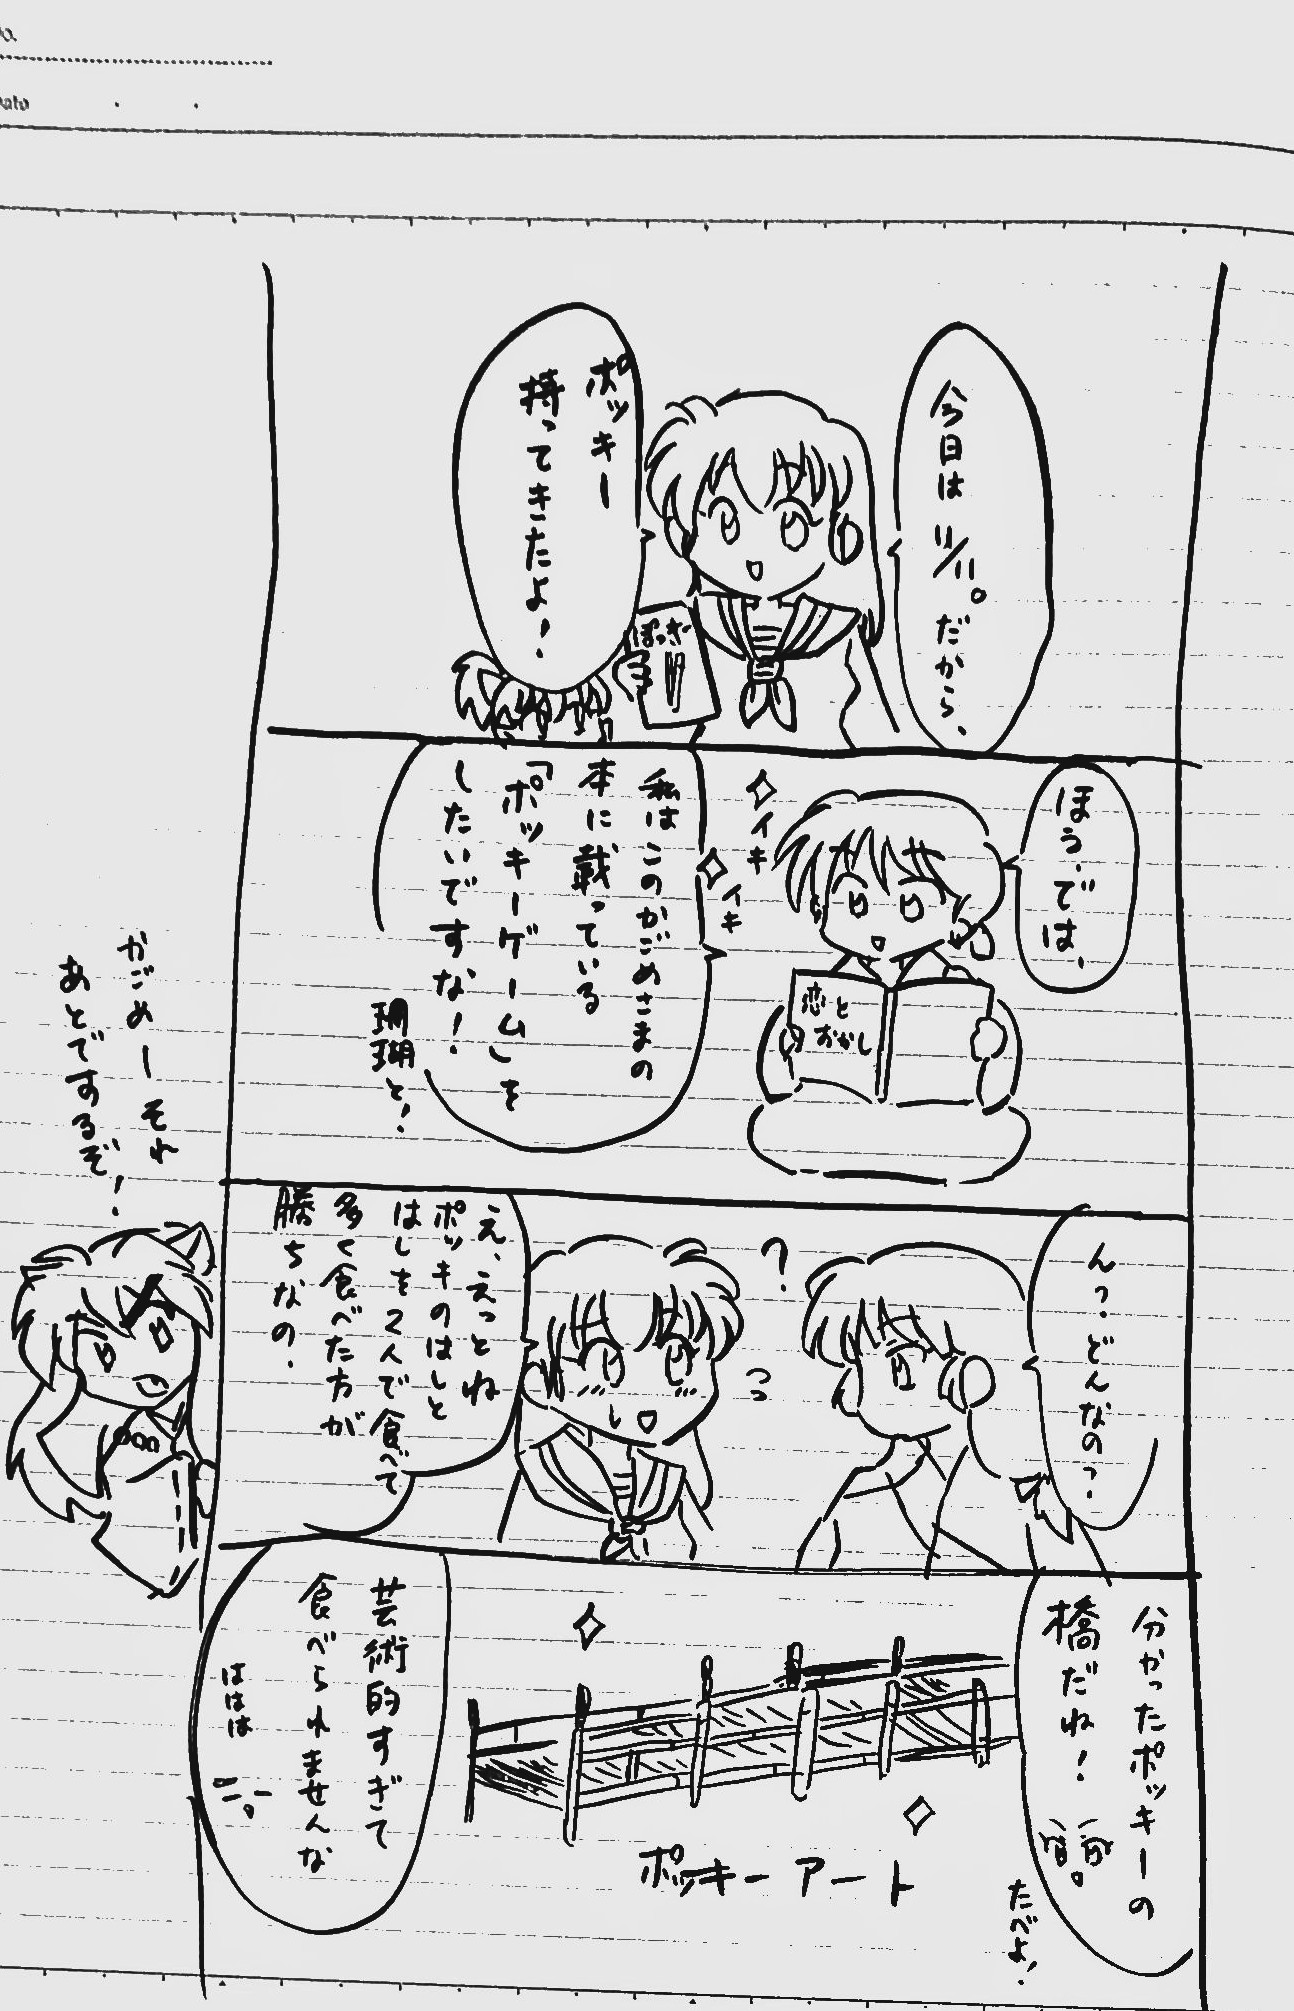 今日は
11/11。
だから、
ポッキー
持ってきたよ!
ぽっきー
ほう、では、
イキ
イキ
私はこのかごめさまの
本に載っている
「ポッキーゲーム」を
したいですな!
珊瑚と!
恋と
おかし
んっ?どんなのっ?
?
え、えっとね
ポッキのはしと
はしを2人で食べて
多く食べた方が
勝ちなの.
かごめーそれ
あとでするぞ!
分かったポッキーの
橋だね!
たべよ!
ポッキーアート
芸術的すぎて
食べられませんな
ははは